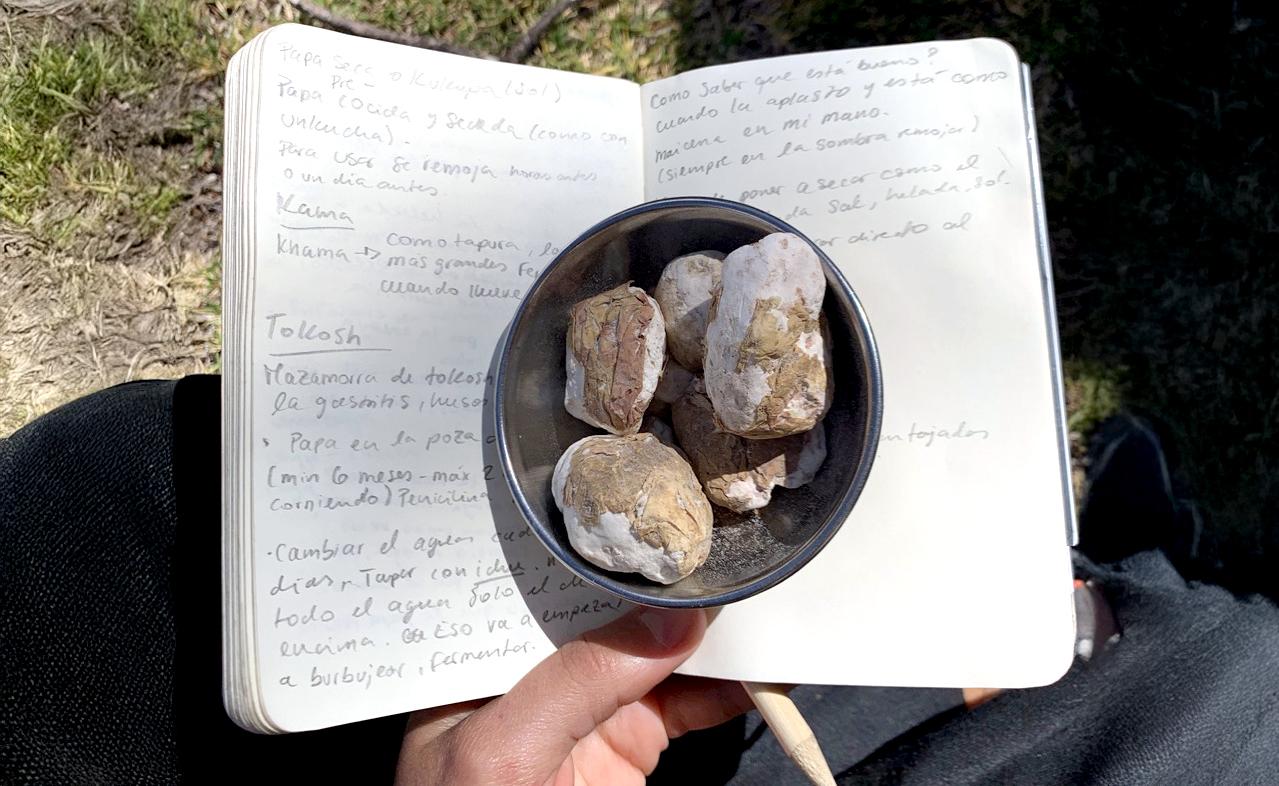 Papa seca o Kukupa (sol)
Pre-
Papa cocida y secada (como con
unkucha).
Para usar se remoja horas antes
o un día antes.
Kama
Khama → como tapura,
mas grandes
cuando llueve
Tokosh
Mazamorra de tokosh
la gastritis,
• Papa en la poza
(min 6 meses - máx 2
corriendo) Penicilina
• Cambiar el agua
días, Tapar con ichu.
todo el agua solo el de
encima. Eso va a empezar
a burbujear, fermentar.
Como saber que está bueno?
cuando la aplasto y está como
maicena en mi mano.
(siempre en la sombra remojar)
poner a secar como el
Sak, helada, sol.
directo al
antojados